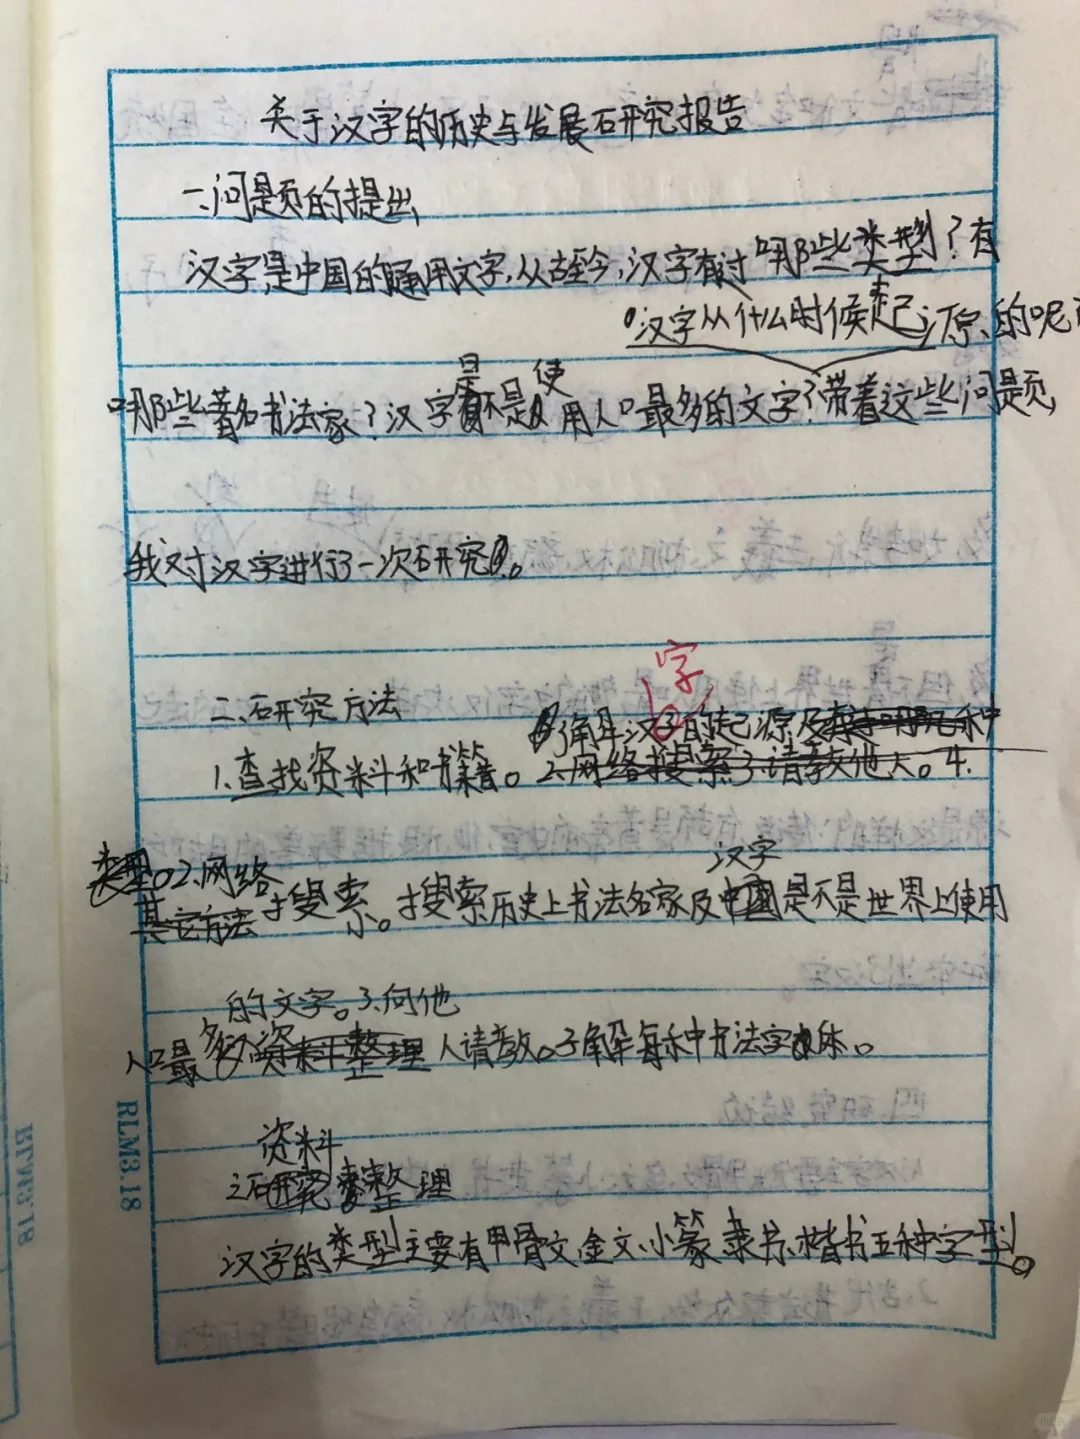 关于汉字的历史与发展研究报告
一、问题的提出
汉字,是中国的通用文字,从古至今,汉字有过哪些类型?有
汉字从什么时候起源的呢?
哪些著名书法家?汉字是不是使用人口最多的文字?带着这些问题,
我对汉字进行了一次研究。
二、研究方法
字
了解汉子的起源及有哪几种
1.查找资料和书籍。2.网络搜索3.请教他人。4.
类型。2.网络
汉字
其它方法搜索。搜索历史上书法名家及中国是不是世界上使用
的文字。3.向他
人口最多资料整理人请教。了解每种书法字体。
资料
三研究整理
汉字的类型主要有甲骨文、金文、小篆、隶书、楷书五种字型。
RLM3.18